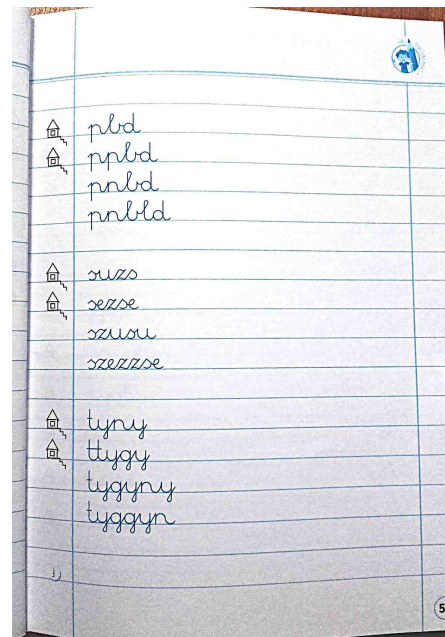 pbd
ppbd
pnbd
pnbld
suzs
sezse
szusu
szezzse
tyny
ttygy
tygyny
tyggyn
j)
5